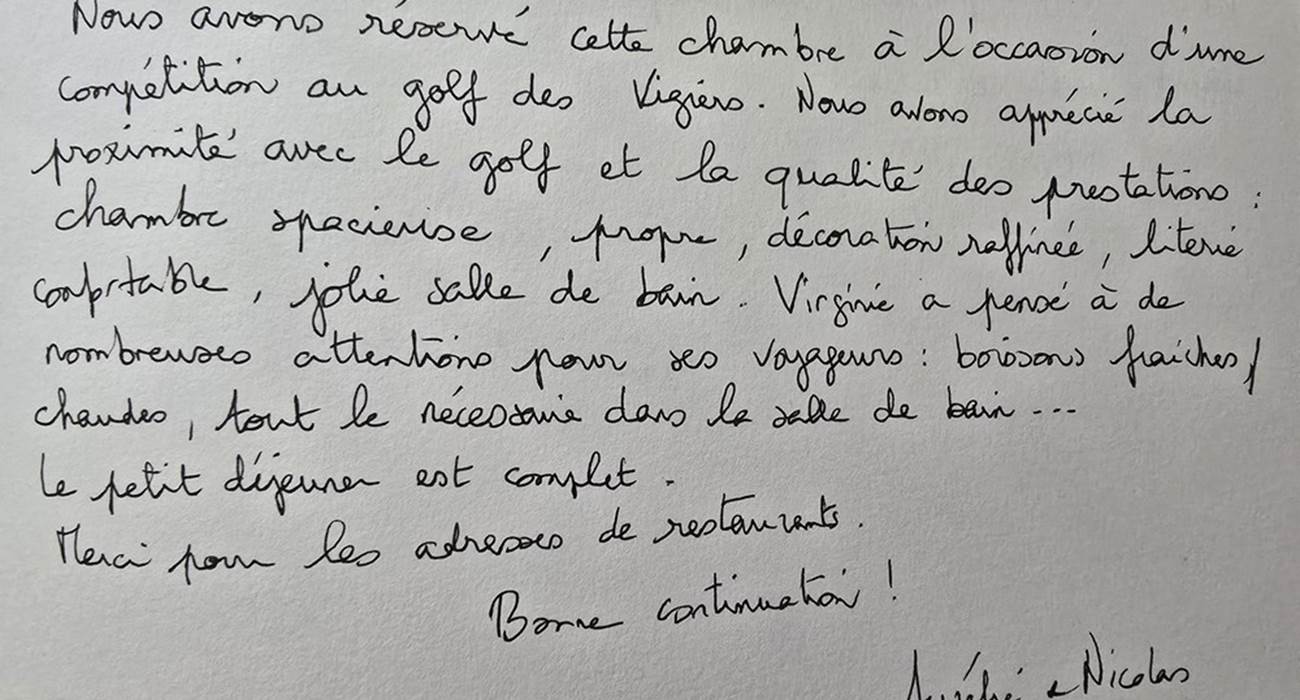 Nous avons réservé cette chambre à l'occasion d'une
compétition au golf des Vigiers. Nous avons apprécié la
proximité avec le golf et la qualité des prestations :
chambre spacieuse, propre, décoration raffinée, literie
confortable, jolie salle de bain. Virginie a pensé à de
nombreuses attentions pour ses voyageurs : boissons fraiches/
chaudes, tout le nécessaire dans la salle de bain ...
Le petit déjeuner est complet.
Merci pour les adresses de restaurants.
Bonne continuation !
Aurélie & Nicolas